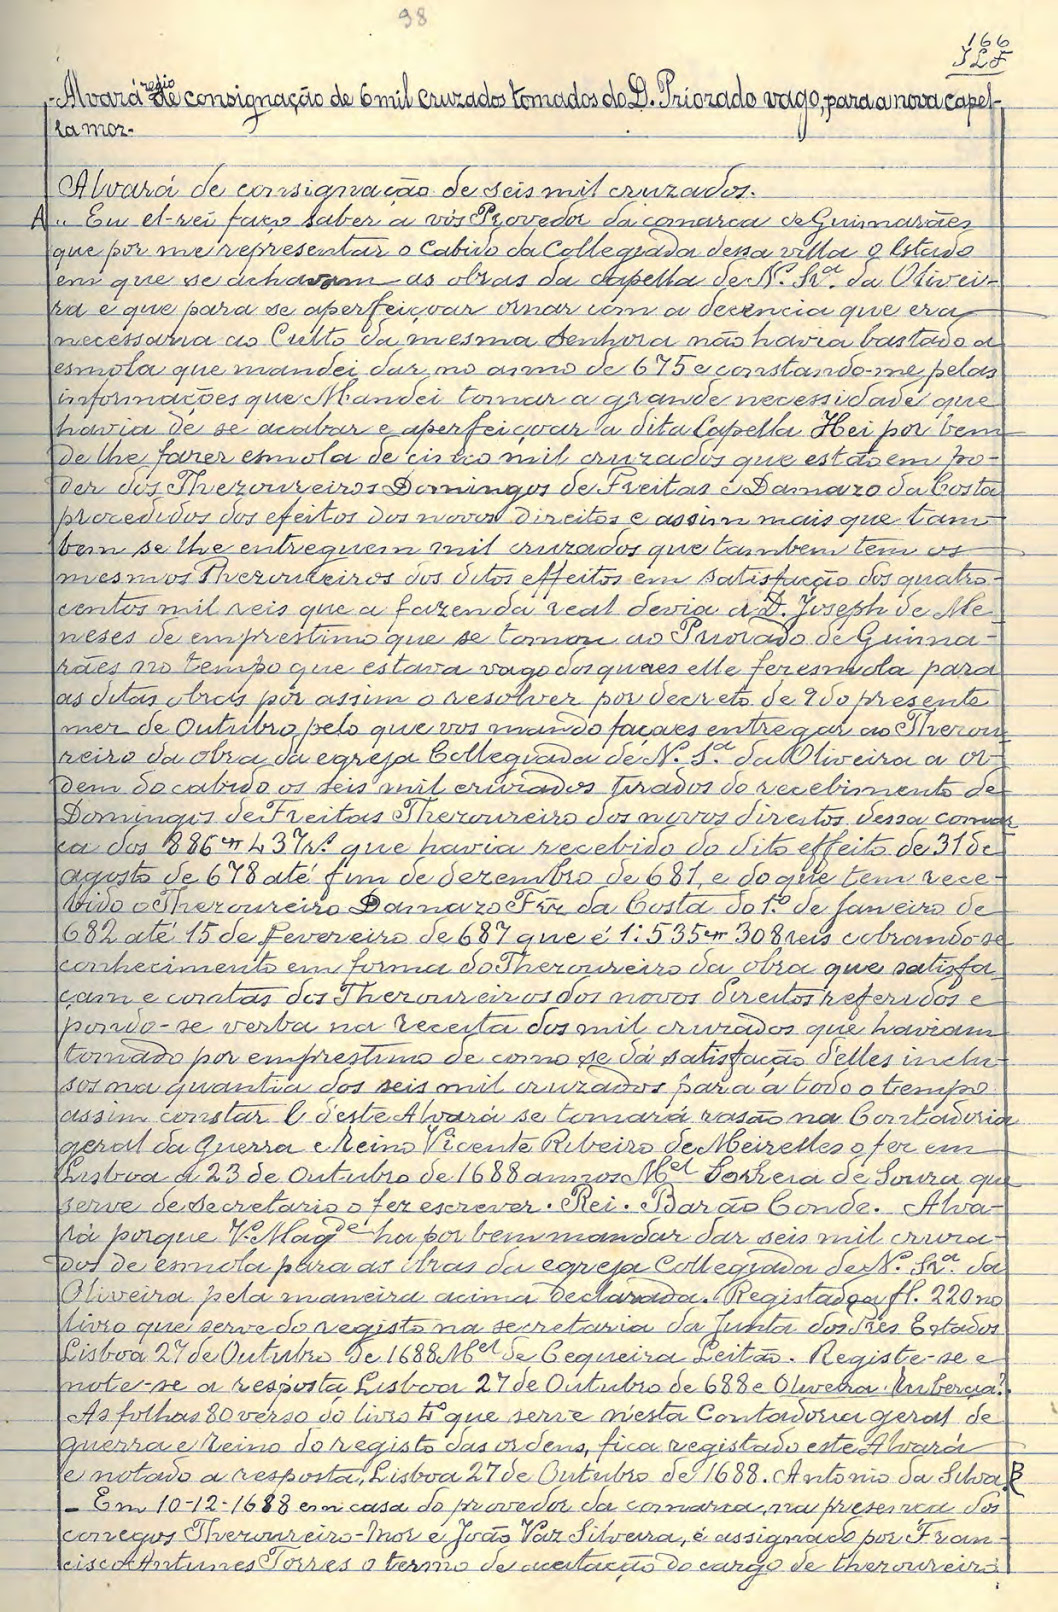 98
166
Alvará regio de consignação de 6 mil cruzados tomados do D. Priorado vago, para a nova capel-
la mor.
Alvará de consignação de seis mil cruzados.
A „ Eu el-rei faço saber a vós Provedor da comarca de Guimarães
que por me representar o Cabido da Collegiada dessa villa o Estado
em que se achavam as obras da capella de N. Srª. da Olivei-
ra e que para se aperfeiçoar ornar com a decencia que era
necessaria ao Culto da mesma Senhora não havia bastado a
esmola que mandei dar no anno de 675 e constando-me pelas
informações que Mandei tomar a grande necessidade que
havia de se acabar e aperfeiçoar a dita Capella Hei por bem
de lhe fazer esmola de cinco mil cruzados que estão em po-
der dos Thezoureiros Domingos de Freitas e Damazo da Costa
procedidos dos efeitos dos novos direitos e assim mais que tam
bem se lhe entreguem mil cruzados que tambem tem os
mesmos Thezoureiros dos ditos effeitos em satisfação dos quatro-
centos mil reis que a fazenda real devia a D. Joseph de Me
neses de emprestimo que se tomou ao Priorado de Guima-
rães no tempo que estava vago dos quaes elle fez esmola para
as ditas obras por assim o resolver por decreto de 9 do presente
mez de Outubro, pelo que vos mando façaes entregar ao Thezou
reiro da obra da egreja Collegiada de N. Sª. da Oliveira a or-
dem do cabido os seis mil cruzados tirados do recebimento de
Domingos de Freitas Thezoureiro dos novos direitos dessa comar
ca dos 886 437 rs. que havia recebido do dito effeito de 31 de
agosto de 678 até fim de dezembro de 681, e do que tem rece-
bido o Thezoureiro Damazo Frz da Costa do 1.º de Janeiro de
682 até 15 de fevereiro de 687 que é 1:535 308 reis cobrando-se
conhecimento em forma do Thezoureiro da obra que satisfa
çam e contas dos Thezoureiros dos novos direitos referidos e
pondo-se verba na receita dos mil cruzados que haviam
tomado por emprestimo de como se dá satisfação d'elles inclu-
sos na quantia dos seis mil cruzados para a todo o tempo
assim constar E d'este Alvará se tomará rasão na Contadoria
geral da Guerra e Reino Vicente Ribeiro de Meirelles o fez em
Lisboa a 23 de Outubro de 1688 annos Mel Correia de Souza que
serve de secretario o fez escrever. Rei. Barão Conde. Alva-
rá porque V. Magde ha por bem mandar dar seis mil cruza-
dos de esmola para as obras da egreja Collegiada de N. Srª. da
Oliveira pela maneira acima declarada. Registado a fl. 220 no
livro que serve do registo na secretaria da Junta dos Três Estados
Lisboa 27 de Outubro de 1688 Mel de Cequeira Leitão. Registe-se e
note-se a resposta Lisboa 27 de Outubro de 688 e Oliveira.
As folhas 80 verso do livro 4º que serve n'esta Contadoria geral de
guerra e Reino do registo das ordens, fica registado este Alvará
e notado a resposta, Lisboa 27 de Outubro de 1688. Antonio da Silva. B
– Em 10-12-1688 em casa do provedor da comarca, na presença dos
conegos Thezoureiro-Mor e João Vaz Silveira, é assignado por Fran-
cisco Antunes Torres o termo de aceitação do cargo de thezoureiro